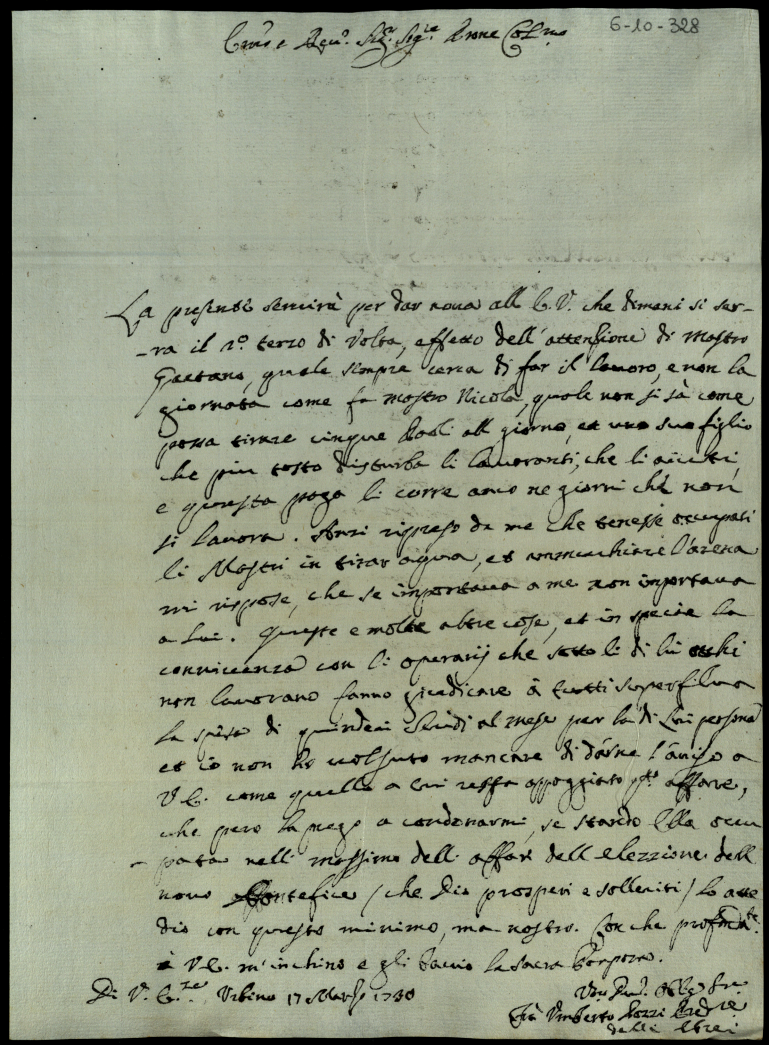 6-10-328
Em.o e Rev.o Sig.r Sig.re Prone Col.mo
La presente servirà per dar nova all E. V. che dimani si ser-
-ra il 2.o terzo di Volta, effetto dell'attenzione di Mastro
Gaetano, quale sempre cerca di far il lavoro, e non la
giornata come fa Mastro Nicola, quale non si sà come
possa tirare cinque Paoli all giorno, et uno suo figlio
che più tosto disturba li lavoranti, che li aiuti,
e questa paga li corre anco ne giorni che non
si lavora. Anzi ripreso da me che tenesse occupati
li Mastri in tirar aqua, et ammucchiare l'arena
mi rispose, che se importava a me non importava
a Lui. Queste e molte altre cose, et in specie la
convivenza con li operarij che sotto li di lui occhi
non lavorano fanno giudicare à tutti superflua
la spesa di quindeci scudi al mese per la di lui persona
et io non ho volsuto mancare di darne l'aviso a
V E. come quello a cui resta appoggiato q.to affare,
che pero la prego a condonarmi, se stando Ella occu
-pata nelli massimo delli affari dell elezzione dell
novo Pontefice / che Dio prosperi e solleciti / lo atte
dio con questo minimo, ma nostro. Con che
à V E. m'inchino e gli bacio la sacra Porpora.
Di V. E.za Urbino 17 Marzo 1730
Um.o Dev.o Obl.o Ser.
Frà Umberto Pozzi
delli Ebrei